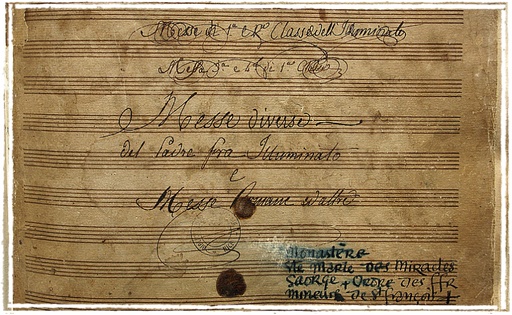 Messe di 1ª e 2ª Classe dell'Illuminato
Messe 3ª e 4ª di 1ª
Messe diverse
del Padre fra Illuminato
e
Messe Romane ed altre
Monastère
Ste Marie des Miracles
Saorge + Ordre des ffr
mineurs de St françois +